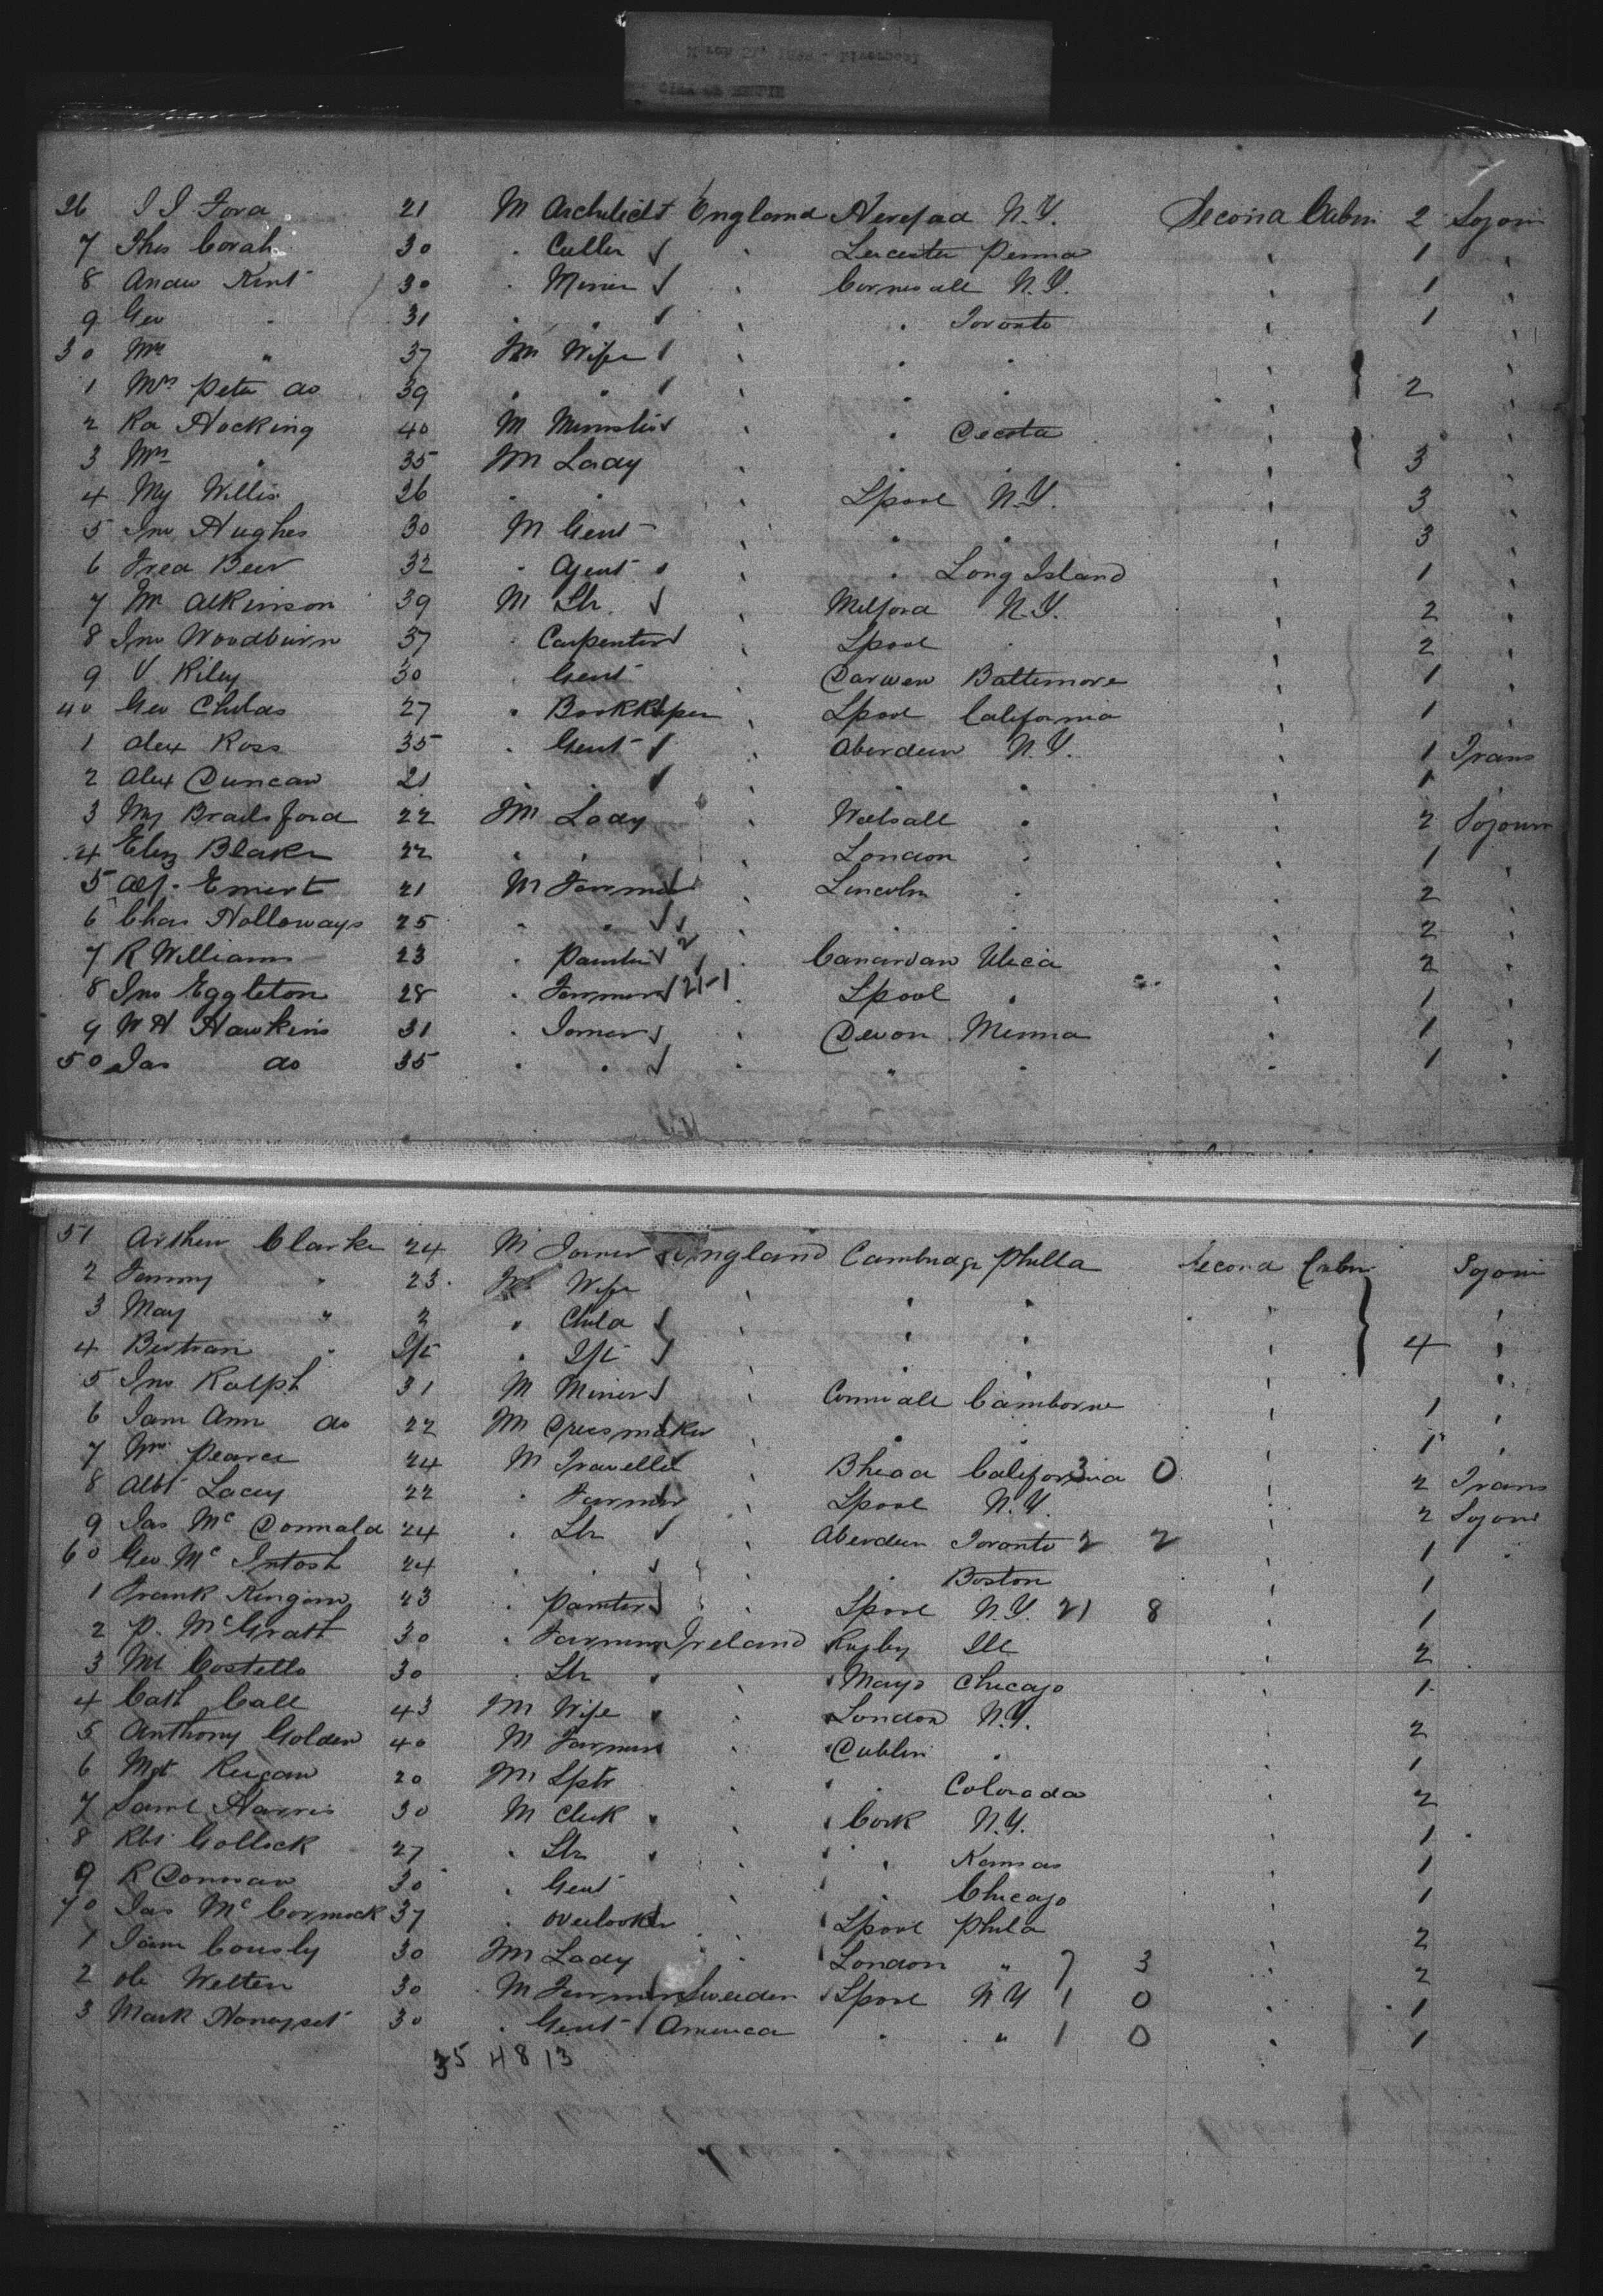 26 J J Ford 21 M Architect England Hereford N.Y. Second Cabin 2 Sojorn
7 Thos Corah 30 " Cutler " Leicester Penna " 1 "
8 Andw Kent 30 " Miner " Cornwall N.Y. " 1 "
9 Geo " 31 " " " " Toronto " 1 "
30 Mrs " 37 Wife " " " " "
1 Mrs Peter do 39 " " " " " " 2 "
2 Rd Hocking 40 M Minister " " "
3 Mrs " 35 Lady " " " " 3 "
4 My Willis 26 " " " Lpool N.Y. " 3 "
5 Jno Hughes 30 M Gent " " " " 3 "
6 Fred Beer 32 " Agent " " Long Island " 1 "
7 Atkinson 39 M Lbr " Milford N.Y. " 2 "
8 Jno Woodburn 37 " Carpenter " Lpool " " 2 "
9 V. Riley 30 " Gent " Darwen Baltimore " 1 "
40 Geo Childs 27 " Bookkeeper " Lpool California " 1 "
1 Alex Ross 35 " Gent " Aberdeen N.Y. " 1 Trans
2 Alex Duncan 21 " " " " " " 1 "
3 My Brailsford 22 Lady " Walsall " " 2 Sojourn
4 Eliz Blake 22 " " " London " " 1 "
5 Alf. Emert 21 M Farmer " Lincoln " " 2 "
6 Chas Holloways 25 " " " " " " 2 "
7 R Williams 23 " Painter 2 " Canarvan Utica " 2 "
8 Jno Eggleton 28 " Farmer 21-1 " Lpool " " 1 "
9 W H Hawkins 31 " Joiner " Devon Minna " 1 "
50 Jas do 35 " " " " " " 1 "
51 Arthur Clarke 24 M Joiner England Cambridge Philla Second Cabin Sojorn
2 Fanny " 23 Wife " " " " "
3 May " 2 " Child " " " " "
4 Bertram " Ift " Ift " " " " 4 "
5 Jno Ralph 31 M Miner " Cornwall Camborne " 1 "
6 Jane Ann do 22 Dressmaker " " " " 1 "
7 Wm Pearce 24 M Traveller " California 3 0 " 2 Trans
8 Albt Lacey 22 " Farmer " Lpool N.Y. " 2 Sojorn
9 Jas Mc Donnald 24 " Lbr " Aberdeen Toronto 2 2 " 1 "
60 Geo. Mc Intosh 24 " " " " Boston " 1
1 Frank Kingdom 43 " Painter " Lpool N.Y. 21 8 " 1
2 P. McGrath 30 " Farmer Ireland Rugby Ill " 2
3 Ml Costello 30 " Lbr " Mayo Chicago " 1
4 Cath Call 43 Wife " London N.Y. 2
5 Anthony Golden 40 M Farmer " Dublin " 1
6 Mgt Reigan 20 Sptr " " Colorado " 2
7 Saml Harris 30 M Clerk " Cork N.Y. " 1
8 Rbt Gollock 27 " Lbr " " Kansas " 1
9 R Donovan 30 " Gent " " Chicago " 1
70 Jas Mc Cormack 37 " Overlooker " Lpool Phila " 2
1 Jane Cously 30 Lady " London " 7 3 " 2
2 Ole Welten 30 M Farmer Sweeden Lpool N Y 1 0 " 1
3 Mark Honeyset 30 " Gent America " " 1 0 " 1
35 48 13